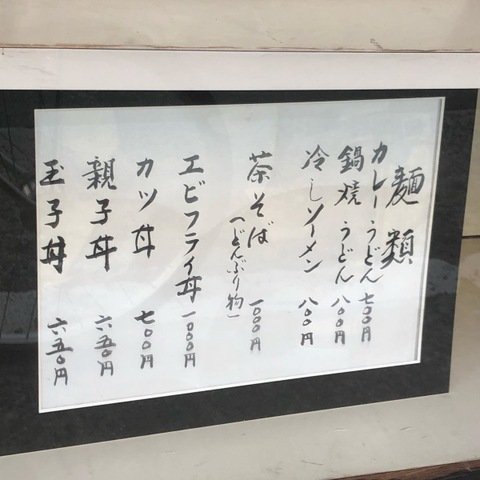 麺類
カレーうどん 七〇〇円
鍋焼うどん 八〇〇円
冷しソーメン 八〇〇円
茶そば 一〇〇〇円
(どんぶり物)
エビフライ丼 一〇〇〇円
カツ丼 七〇〇円
親子丼 六五〇円
玉子丼 六五〇円